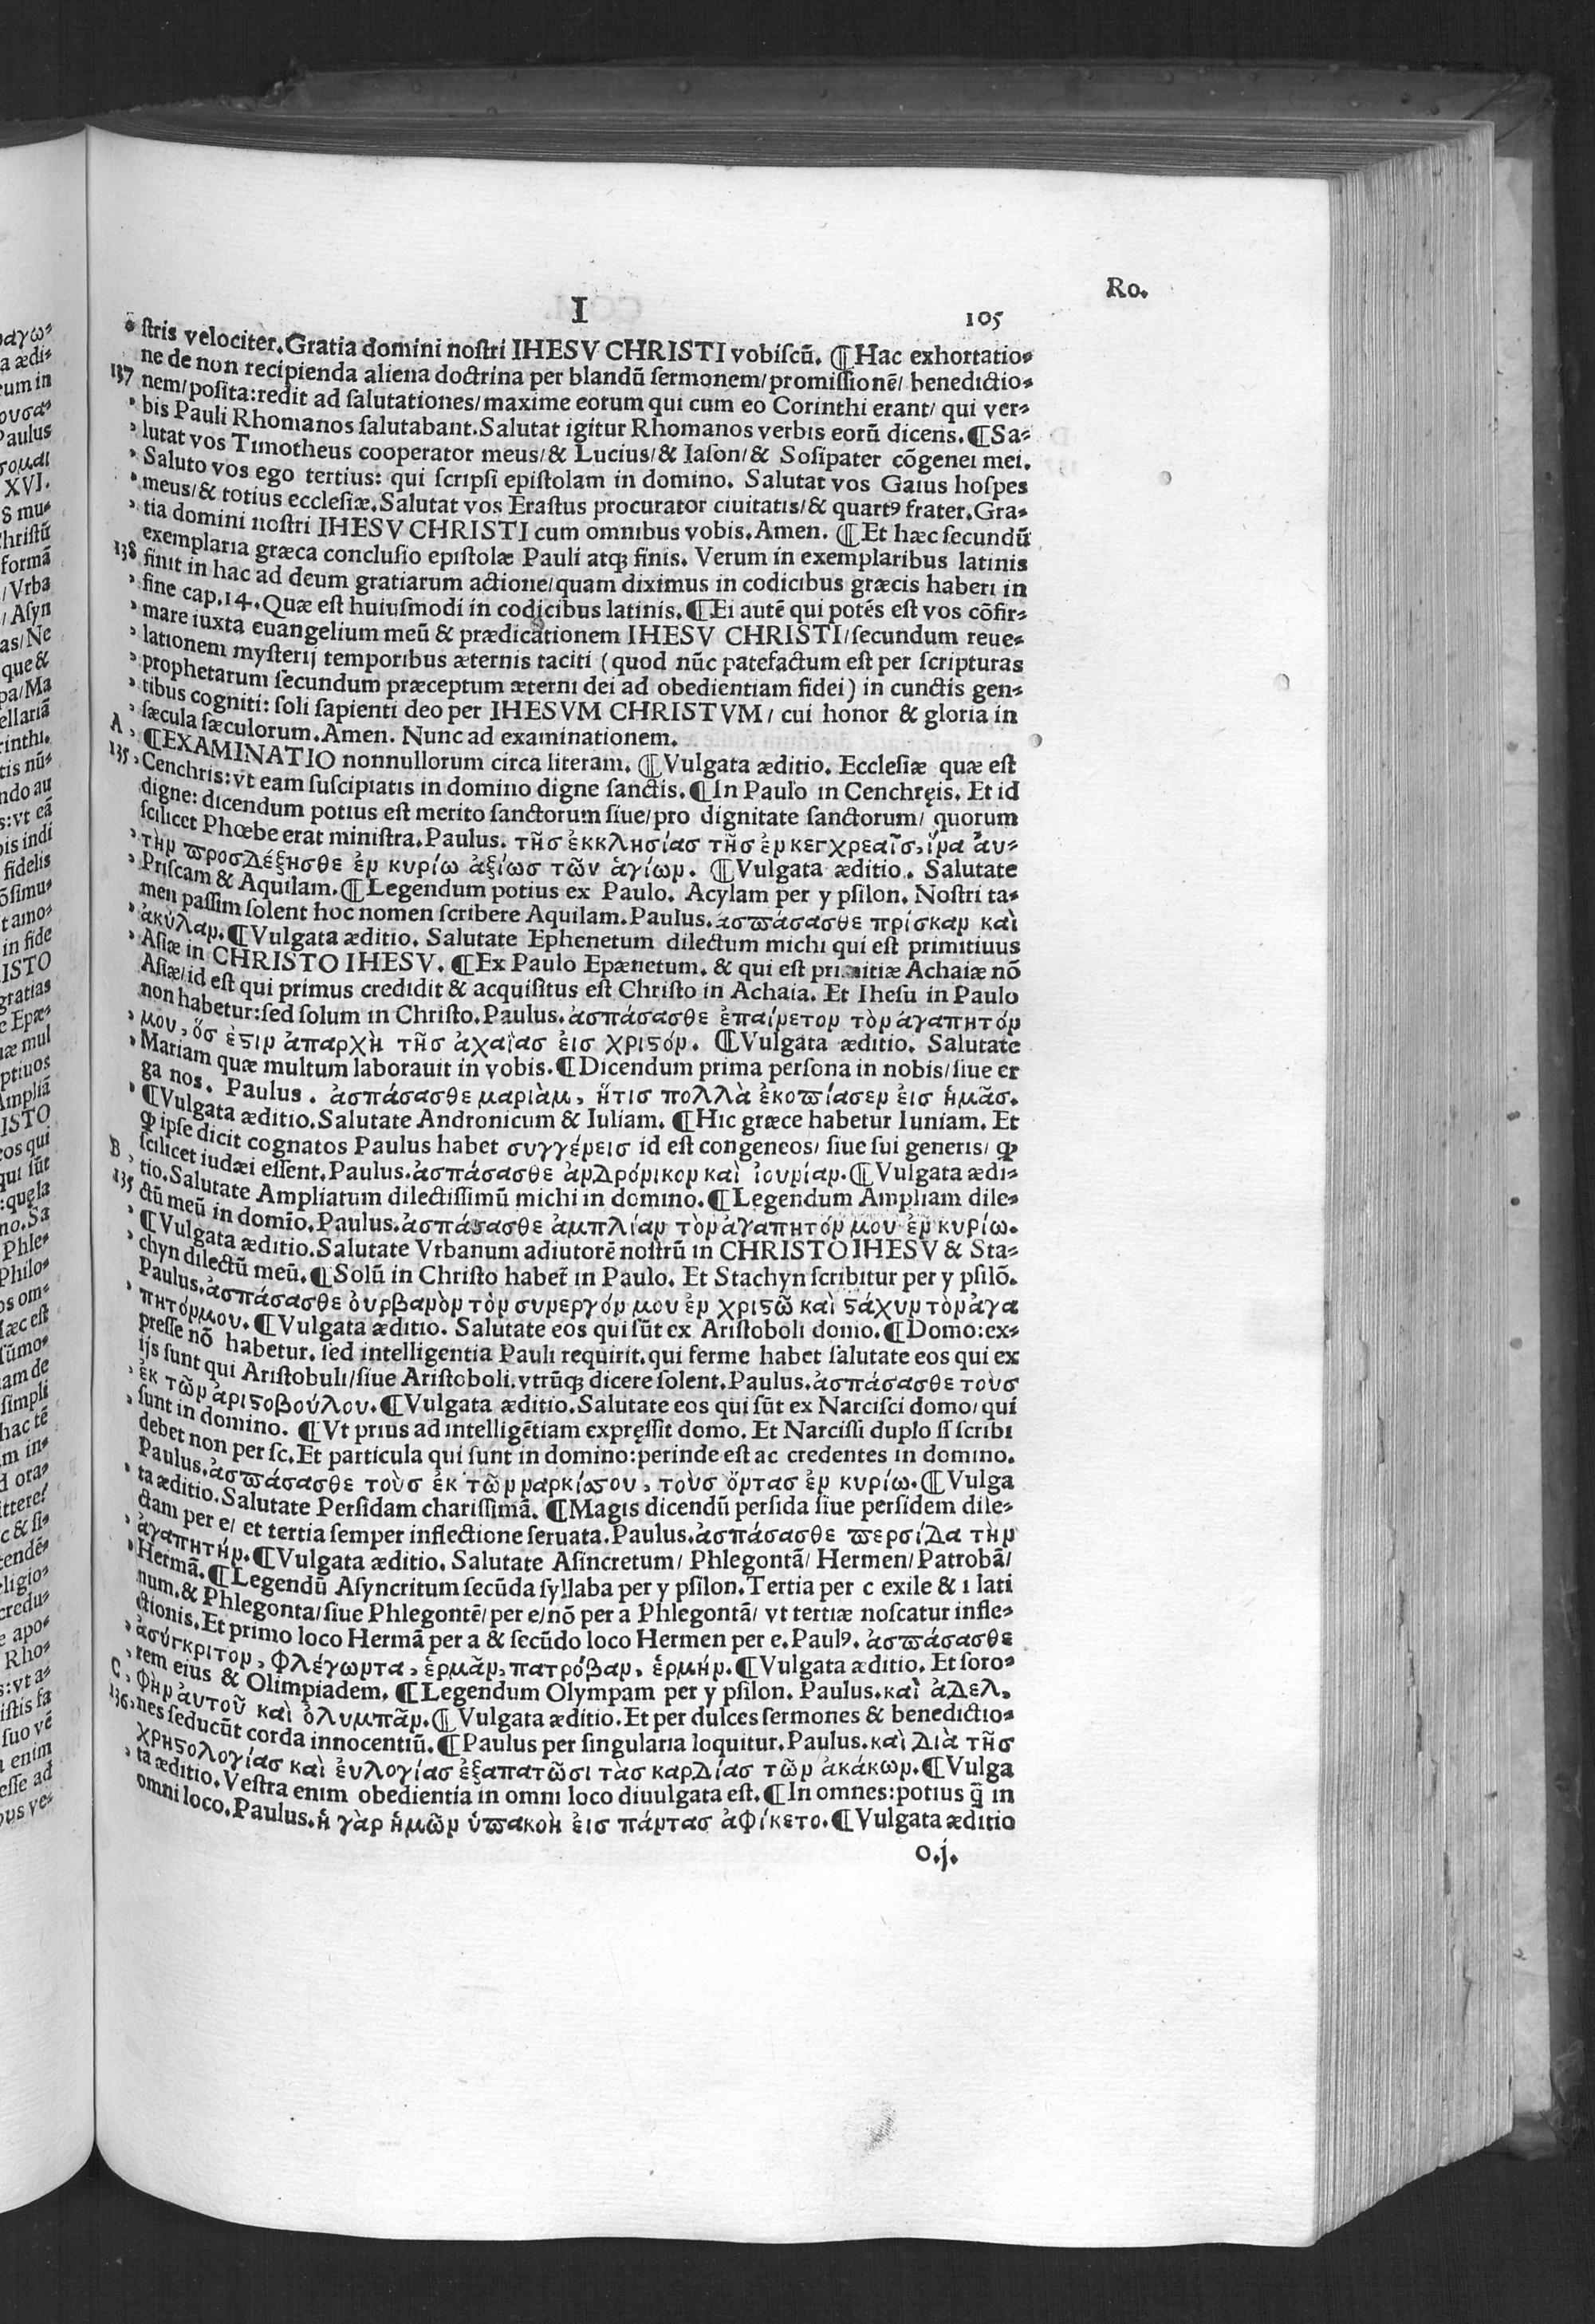 Ro.
I
105
stris velociter. Gratia domini nostri IHESV CHRISTI vobiscũ. ¶ Hac exhortatio⸗
ne de non recipienda aliena doctrina per blandũ sermonem/ promissionẽ/ benedictio⸗
137 nem/ posita: redit ad salutationes/ maxime eorum qui cum eo Corinthi erant/ qui ver⸗
bis Pauli Rhomanos salutabant. Salutat igitur Rhomanos verbis eorũ dicens. ¶ Sa⸗
lutat vos Timotheus cooperator meus/ & Lucius/ & Iason/ & Sosipater cõgenei mei.
Saluto vos ego tertius: qui scripsi epistolam in domino. Salutat vos Gaius hospes
meus/ & totius ecclesiæ. Salutat vos Erastus procurator ciuitatis/ & quartꝰ frater. Gra⸗
tia domini nostri IHESV CHRISTI cum omnibus vobis. Amen. ¶ Et hæc secundũ
exemplaria græca conclusio epistolæ Pauli atqꝫ finis. Verum in exemplaribus latinis
138 finit in hac ad deum gratiarum actione/ quam diximus in codicibus græcis haberi in
fine cap. 14. Quæ est huiusmodi in codicibus latinis. ¶ Ei autẽ qui potẽs est vos cõfir⸗
mare iuxta euangelium meũ & prædicationem IHESV CHRISTI/ secundum reue⸗
lationem mysterij temporibus æternis taciti (quod nũc patefactum est per scripturas
prophetarum secundum præceptum æterni dei ad obedientiam fidei) in cunctis gen⸗
tibus cogniti: soli sapienti deo per IHESVM CHRISTVM/ cui honor & gloria in
sæcula sæculorum. Amen. Nunc ad examinationem.
A ¶ EXAMINATIO nonnullorum circa literam. ¶ Vulgata æditio. Ecclesiæ quæ est
135 Cenchris: vt eam suscipiatis in domino digne sanctis. ¶ In Paulo in Cenchręis. Et id
digne: dicendum potius est merito sanctorum siue/ pro dignitate sanctorum/ quorum
scilicet Phœbe erat ministra. Paulus. τῆσ ἐκκλησίασ τῆσ ἐν κεγχρεαῖσ, ἵνα ἀυ⸗
τὴν προσδέξησθε ἐν κυρίω ἀξίωσ τῶν ἁγίων. ¶ Vulgata æditio. Salutate
Priscam & Aquilam. ¶ Legendum potius ex Paulo. Acylam per y psilon. Nostri ta⸗
men passim solent hoc nomen scribere Aquilam. Paulus. ἀσπάσασθε πρίσκαν καὶ
ἀκύλαν. ¶ Vulgata æditio. Salutate Ephenetum dilectum michi qui est primitiuus
Asiæ in CHRISTO IHESV. ¶ Ex Paulo Epænetum. & qui est primitiæ Achaiæ nõ
Asiæ/ id est qui primus credidit & acquisitus est Christo in Achaia. Et Ihesu in Paulo
non habetur: sed solum in Christo. Paulus. ἀσπάσασθε ἐπαίνετον τὸν ἀγαπητόν
μου, ὅσ ἐϛιν ἀπαρχὴ τῆσ ἀχαΐασ ἐισ χριϛόν. ¶ Vulgata æditio. Salutate
Mariam quæ multum laborauit in vobis. ¶ Dicendum prima persona in nobis/ siue er
ga nos. Paulus. ἀσπάσασθε μαριὰμ, ἥτισ πολλὰ ἐκοπίασεν ἐισ ἡμᾶσ.
¶ Vulgata æditio. Salutate Andronicum & Iuliam. ¶ Hic græce habetur Iuniam. Et
ꝙ ipse dicit cognatos Paulus habet συγγένεισ id est congeneos/ siue sui generis/ ꝙ
B scilicet iudæi essent. Paulus. ἀσπάσασθε ἀνδρόνικον καὶ ἰουνίαν. ¶ Vulgata ædi⸗
135 tio. Salutate Ampliatum dilectissimũ michi in domino. ¶ Legendum Ampliam dile⸗
ctũ meũ in domĩo. Paulus. ἀσπάσασθε ἀμπλίαν τὸν ἀγαπητόν μου ἐν κυρίω.
¶ Vulgata æditio. Salutate Vrbanum adiutorẽ nostrũ in CHRISTO IHESV & Sta⸗
chyn dilectũ meũ. ¶ Solũ in Christo habet̃ in Paulo. Et Stachyn scribitur per y psilõ.
Paulus. ἀσπάσασθε ὀυρβανὸν τὸν συνεργόν μου ἐν χριϛῶ καὶ ϛάχυν τὸν ἀγα
πητόν μου. ¶ Vulgata æditio. Salutate eos qui sũt ex Aristoboli domo. ¶ Domo: ex⸗
presse nõ habetur. sed intelligentia Pauli requirit. qui ferme habet salutate eos qui ex
ijs sunt qui Aristobuli/ siue Aristoboli. vtrũqꝫ dicere solent. Paulus. ἀσπάσασθε τοὺσ
ἐκ τῶν ἀριϛοβούλου. ¶ Vulgata æditio. Salutate eos qui sũt ex Narcisci domo/ qui
sunt in domino. ¶ Vt prius ad intelligẽtiam expręssit domo. Et Narcissi duplo ss scribi
debet non per sc. Et particula qui sunt in domino: perinde est ac credentes in domino.
Paulus. ἀσπάσασθε τοὺσ ἐκ τῶν ναρκίσσου, τοὺσ ὄντασ ἐν κυρίω. ¶ Vulga
ta æditio. Salutate Persidam charissimã. ¶ Magis dicendũ persida siue persidem dile⸗
ctam per e/ et tertia semper inflectione seruata. Paulus. ἀσπάσασθε περσίδα τὴν
ἀγαπητήν. ¶ Vulgata æditio. Salutate Asincretum/ Phlegontã/ Hermen/ Patrobã/
Hermã. ¶ Legendũ Asyncritum secũda syllaba per y psilon. Tertia per c exile & i lati
num. & Phlegonta/ siue Phlegontẽ/ per e/ nõ per a Phlegontã/ vt tertiæ noscatur infle⸗
ctionis. Et primo loco Hermã per a & secũdo loco Hermen per e. Paulꝰ. ἀσπάσασθε
ἀσύγκριτον, φλέγωντα, ἑρμᾶν, πατρόβαν, ἑρμήν. ¶ Vulgata æditio. Et soro⸗
C rem eius & Olimpiadem. ¶ Legendum Olympam per y psilon. Paulus. καὶ ἀδελ⸗
φὴν ἀυτοῦ καὶ ὀλυμπᾶν. ¶ Vulgata æditio. Et per dulces sermones & benedictio⸗
136 nes seducũt corda innocentiũ. ¶ Paulus per singularia loquitur. Paulus. καὶ διὰ τῆσ
χρηϛολογίασ καὶ ἐυλογίασ ἐξαπατῶσι τὰσ καρδίασ τῶν ἀκάκων. ¶ Vulga
ta æditio. Vestra enim obedientia in omni loco diuulgata est. ¶ In omnes: potius q̃ in
omni loco. Paulus. ἡ γὰρ ἡμῶν ὑπακοὴ ἐισ πάντασ ἀφίκετο. ¶ Vulgata æditio
o.j.